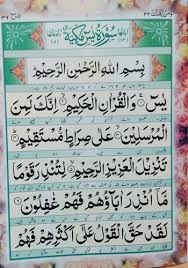 سُوْرَةُ يٰسٓ مَكِّيَّةٌ
بِسْمِ اللّٰهِ الرَّحْمٰنِ الرَّحِيْمِ
يٰسٓ ۚ وَالْقُرْاٰنِ الْحَكِيْمِ ۙ اِنَّكَ لَمِنَ
الْمُرْسَلِيْنَ ۙ عَلٰى صِرَاطٍ مُّسْتَقِيْمٍ ؕ
تَنْزِيْلَ الْعَزِيْزِ الرَّحِيْمِ ۙ لِتُنْذِرَ قَوْمًا
مَّاۤ اُنْذِرَ اٰبَآؤُهُمْ فَهُمْ غٰفِلُوْنَ
لَقَدْ حَقَّ الْقَوْلُ عَلٰۤى اَكْثَرِهِمْ فَهُمْ